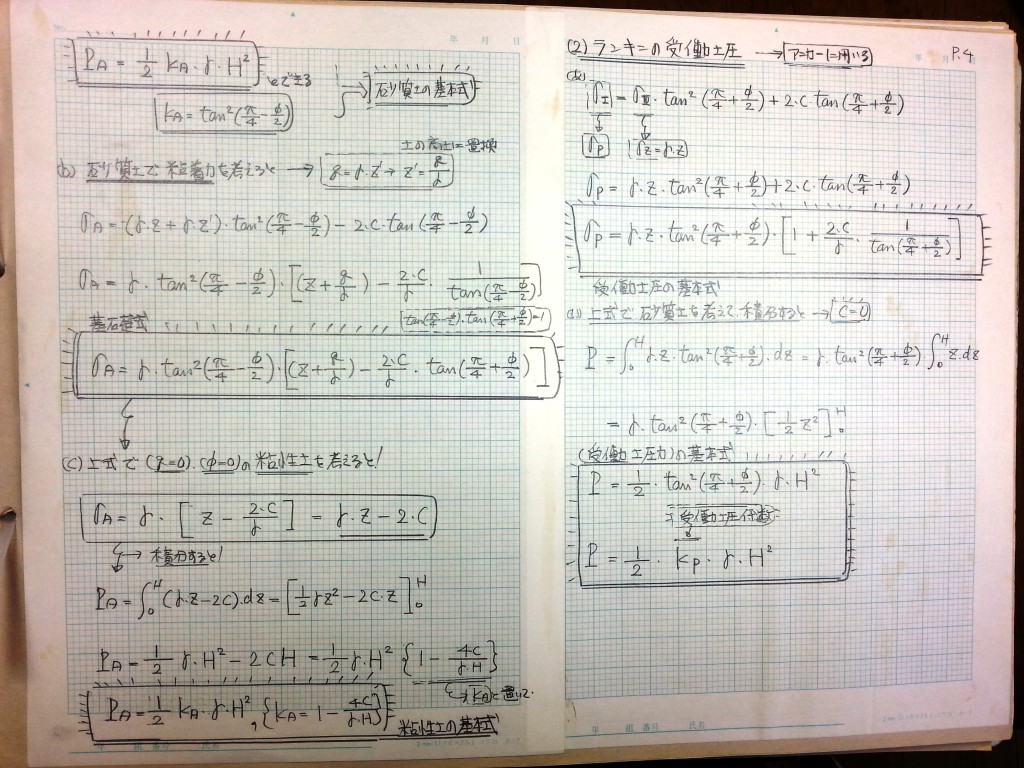 P_A = 1/2 K_A・γ・H²
とできる
K_A = tan²(π/4 − φ/2)
砂質土の基本式
土の高さに置換
(b) 砂質土で粘着力を考えると → q = γ・z' → z' = q/γ
σ_A = (γ・z + γ・z')・tan²(π/4 − φ/2) − 2・C tan(π/4 − φ/2)
σ_A = γ・tan²(π/4 − φ/2)・[(z + q/γ) − 2・C/γ・1/tan(π/4 − φ/2)]
基礎式
tan(π/4 − φ/2)・tan(π/4 + φ/2) = 1
σ_A = γ・tan²(π/4 − φ/2)・[(z + q/γ) − 2・C/γ・tan(π/4 + φ/2)]
(c) 上式で (q=0)・(φ=0)の粘性土を考えると!
σ_A = γ・[z − 2・C/γ] = γ・z − 2・C
→ 積分すると!
P_A = ∫₀ᴴ (γ・z − 2C)・dz = [1/2 γz² − 2C・z]₀ᴴ
P_A = 1/2 γ・H² − 2CH = 1/2 γ・H² {1 − 4C/γ・H}
K_Aと置いて
P_A = 1/2 K_A・γ・H², {K_A = 1 − 4C/γ・H}
粘性土の基本式
年 組 番号 氏名
年 月 日
P.4
(2) ランキンの受働土圧 → アンカーに用いる
σ_I = σ_III・tan²(π/4 + φ/2) + 2・C tan(π/4 + φ/2)
σ_P σ_z = γ・z
σ_P = γ・z・tan²(π/4 + φ/2) + 2・C・tan(π/4 + φ/2)
σ_P = γ・z・tan²(π/4 + φ/2)・[1 + 2・C/γ・1/tan(π/4 + φ/2)]
受働土圧の基本式
上式で砂質土を考えて、積分すると → C=0
P = ∫₀ᴴ γ・z・tan²(π/4 + φ/2)・dz = γ・tan²(π/4 + φ/2) ∫₀ᴴ z・dz
= γ・tan²(π/4 + φ/2)・[1/2 z²]₀ᴴ
(受働土圧力)の基本式
P = 1/2・tan²(π/4 + φ/2)・γ・H²
受働土圧係数
P = 1/2・K_P・γ・H²
年 組 番号 氏名